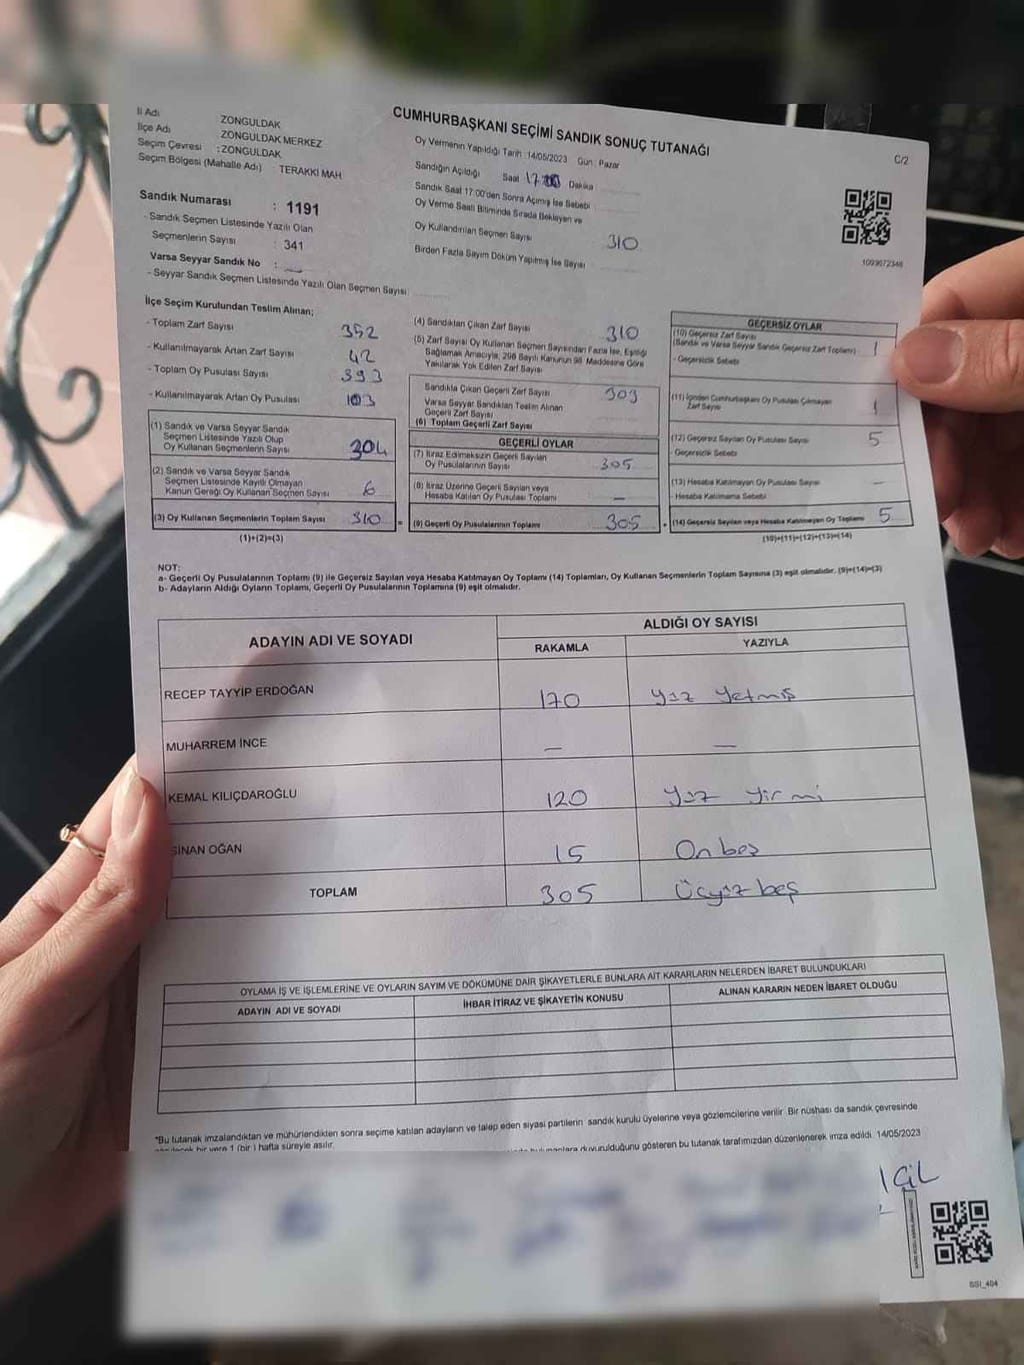 CUMHURBAŞKANI SEÇİMİ SANDIK SONUÇ TUTANAĞI
C/2
İl Adı ZONGULDAK
İlçe Adı ZONGULDAK MERKEZ
Seçim Çevresi : ZONGULDAK
Seçim Bölgesi (Mahalle Adı) : TERAKKİ MAH
Sandık Numarası : 1191
- Sandık Seçmen Listesinde Yazılı Olan
Seçmenlerin Sayısı : 341
Varsa Seyyar Sandık No :
- Seyyar Sandık Seçmen Listesinde Yazılı Olan Seçmen Sayısı:
Oy Vermenin Yapıldığı Tarih : 14/05/2023 Gün : Pazar
Sandığın Açıldığı Saat 17 Dakika
Sandık Saat 17:00'den Sonra Açılmış İse Sebebi
Oy Verme Saati Bitiminde Sırada Bekleyen ve
Oy Kullandırılan Seçmen Sayısı 310
Birden Fazla Sayım Döküm Yapılmış İse Sayısı
1093672346
İlçe Seçim Kurulundan Teslim Alınan;
- Toplam Zarf Sayısı 352
- Kullanılmayarak Artan Zarf Sayısı 42
- Toplam Oy Pusulası Sayısı 393
- Kullanılmayarak Artan Oy Pusulası 103
(1) Sandık ve Varsa Seyyar Sandık
Seçmen Listesinde Yazılı Olup
Oy Kullanan Seçmenlerin Sayısı 304
(2) Sandık ve Varsa Seyyar Sandık
Seçmen Listesinde Kayıtlı Olmayan
Kanun Gereği Oy Kullanan Seçmen Sayısı 6
(3) Oy Kullanan Seçmenlerin Toplam Sayısı 310
(1)+(2)=(3)
(4) Sandıktan Çıkan Zarf Sayısı 310
(5) Zarf Sayısı Oy Kullanan Seçmen Sayısından Fazla İse, Eşitliği
Sağlamak Amacıyla, 298 Sayılı Kanunun 98. Maddesine Göre
Yakılarak Yok Edilen Zarf Sayısı
Sandıkta Çıkan Geçerli Zarf Sayısı 309
Varsa Seyyar Sandıktan Teslim Alınan
Geçerli Zarf Sayısı
(6) Toplam Geçerli Zarf Sayısı
GEÇERLİ OYLAR
(7) İtiraz Edilmeksizin Geçerli Sayılan
Oy Pusulalarının Sayısı 305
(8) İtiraz Üzerine Geçerli Sayılan veya
Hesaba Katılan Oy Pusulası Toplamı –
(9) Geçerli Oy Pusulalarının Toplamı 305
GEÇERSİZ OYLAR
(10) Geçersiz Zarf Sayısı
(Sandık ve Varsa Seyyar Sandık Geçersiz Zarf Toplamı) 1
- Geçersizlik Sebebi
(11) İçinden Cumhurbaşkanı Oy Pusulası Çıkmayan
Zarf Sayısı 1
(12) Geçersiz Sayılan Oy Pusulası Sayısı 5
- Geçersizlik Sebebi
(13) Hesaba Katılmayan Oy Pusulası Sayısı –
- Hesaba Katılmama Sebebi
(14) Geçersiz Sayılan veya Hesaba Katılmayan Oy Toplamı 5
(10)+(11)+(12)+(13)=(14)
NOT:
a- Geçerli Oy Pusulalarının Toplamı (9) ile Geçersiz Sayılan veya Hesaba Katılmayan Oy Toplamı (14) Toplamları, Oy Kullanan Seçmenlerin Toplam Sayısına (3) eşit olmalıdır. (9)+(14)=(3)
b- Adayların Aldığı Oyların Toplamı, Geçerli Oy Pusulalarının Toplamına (9) eşit olmalıdır.
ADAYIN ADI VE SOYADI ALDIĞI OY SAYISI
RAKAMLA YAZIYLA
RECEP TAYYİP ERDOĞAN 170 Yüz Yetmiş
MUHARREM İNCE – –
KEMAL KILIÇDAROĞLU 120 Yüz Yirmi
SİNAN OĞAN 15 On beş
TOPLAM 305 Üçyüz beş
OYLAMA İŞ VE İŞLEMLERİNE VE OYLARIN SAYIM VE DÖKÜMÜNE DAİR ŞİKAYETLERLE BUNLARA AİT KARARLARIN NELERDEN İBARET BULUNDUKLARI
ADAYIN ADI VE SOYADI İHBAR İTİRAZ VE ŞİKAYETİN KONUSU ALINAN KARARIN NEDEN İBARET OLDUĞU
*Bu tutanak imzalandıktan ve mühürlendikten sonra seçime katılan adayların ve talep eden siyasi partilerin sandık kurulu üyelerine veya gözlemcilerine verilir. Bir nüshası da sandık çevresinde
bir yere 1 (bir) hafta süreyle asılır.
duyurulduğunu gösteren bu tutanak tarafımızdan düzenlenerek imza edildi. 14/05/2023
SSI_404